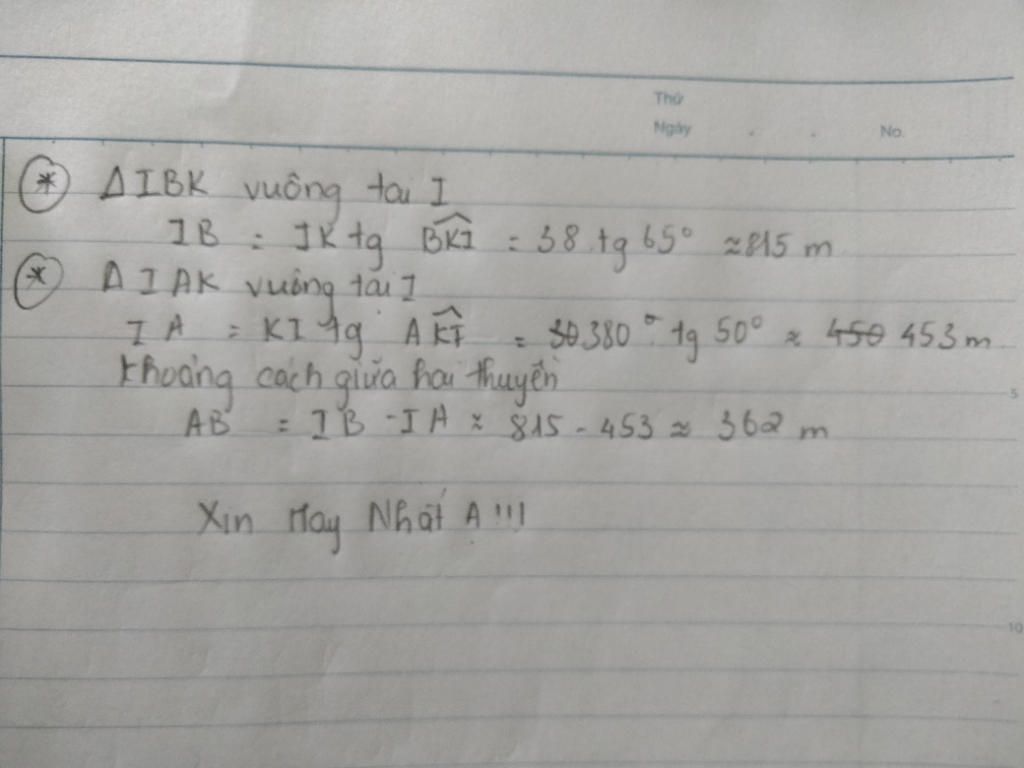 Thứ
Ngày . . No.
* ΔIBK vuông tại I
IB = IK tg BKI = 38 . tg 65° ≈ 815 m
* ΔIAK vuông tại I
IA = KI tg AKI = 30 380 . tg 50° ≈ 450 453 m
Khoảng cách giữa hai thuyền
5
AB = IB - IA ≈ 815 - 453 ≈ 362 m
Xin Hay Nhất Ạ !!!
10